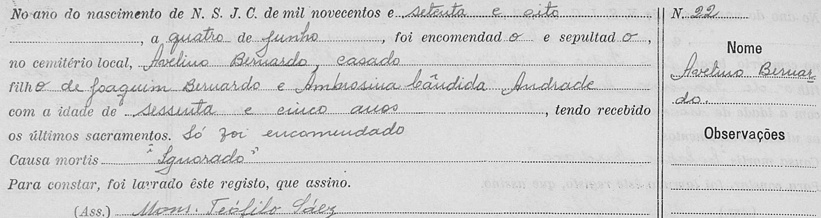 No ano do nascimento de N. S. J. C. de mil novecentos e setenta e oito
, a quatro de junho, foi encomendad o e sepultad o,
no cemitério local, Avelino Bernardo, casado
filho de Joaquim Bernardo e Ambrosina Cândida Andrade
com a idade de sessenta e cinco anos, tendo recebido
os últimos sacramentos. Só foi encomendado
Causa mortis "Ignorado"
Para constar, foi lavrado êste registo, que assino.
(Ass.) Mons. Teófilo Sáez
N. 22
Nome
Avelino Bernar-
do.
Observações